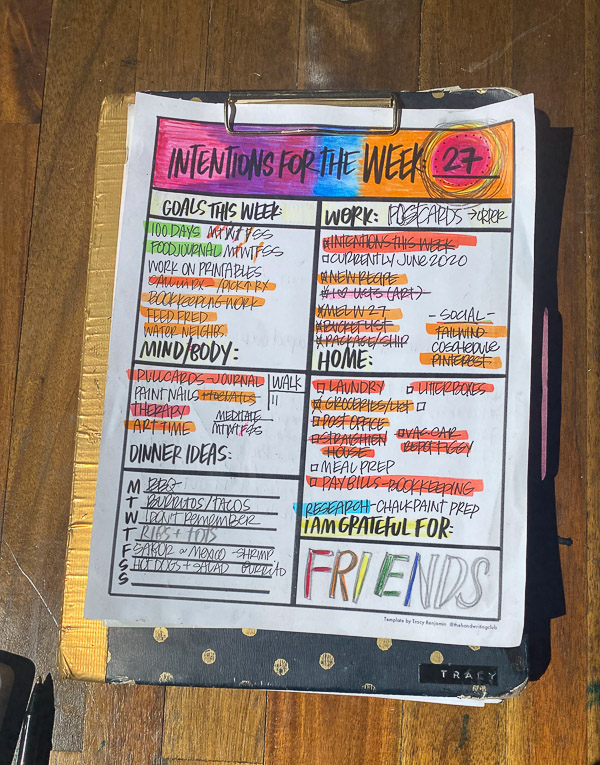 INTENTIONS FOR THE WEEK: 27
GOALS THIS WEEK:
100 DAYS MTWTFSS
FOOD JOURNAL MTWTFSS
WORK ON PRINTABLES
CALL IN RX /PICK UP RX
BOOKKEEPING WORK
FEED FRED
WATER NEIGHBS
WORK: POSTCARDS → ORDER
INTENTIONS THIS WEEK
CURRENTLY JUNE 2020
NEW RECIPE
LISTS (ART)
MEL W 27
BUCKET LIST
PACKAGE/SHIP
- SOCIAL -
TAILWIND
COSCHEDULE
PINTEREST
MIND/BODY:
PULL CARDS - JOURNAL
PAINT NAILS
THERAPY
ART TIME
WALK
II
MEDITATE
MTWTFSS
HOME:
LAUNDRY
LITTERBOXES
GROCERIES/LIST
POST OFFICE
STRAIGHTEN
HOUSE
VAC CAR
REPOT FIGGY
MEAL PREP
PAY BILLS - BOOKKEEPING
RESEARCH - CHALKPAINT PREP
DINNER IDEAS:
M BBQ
T BURRITOS/TACOS
W I DON'T REMEMBER
T RIBS + TOTS
F SAKURA OR MEXICO - SHRIMP
S HOT DOGS + SALAD BURRITO
S
I AM GRATEFUL FOR:
FRIENDS
Template by Tracy Benjamin @thehandwritingclub
TRACY